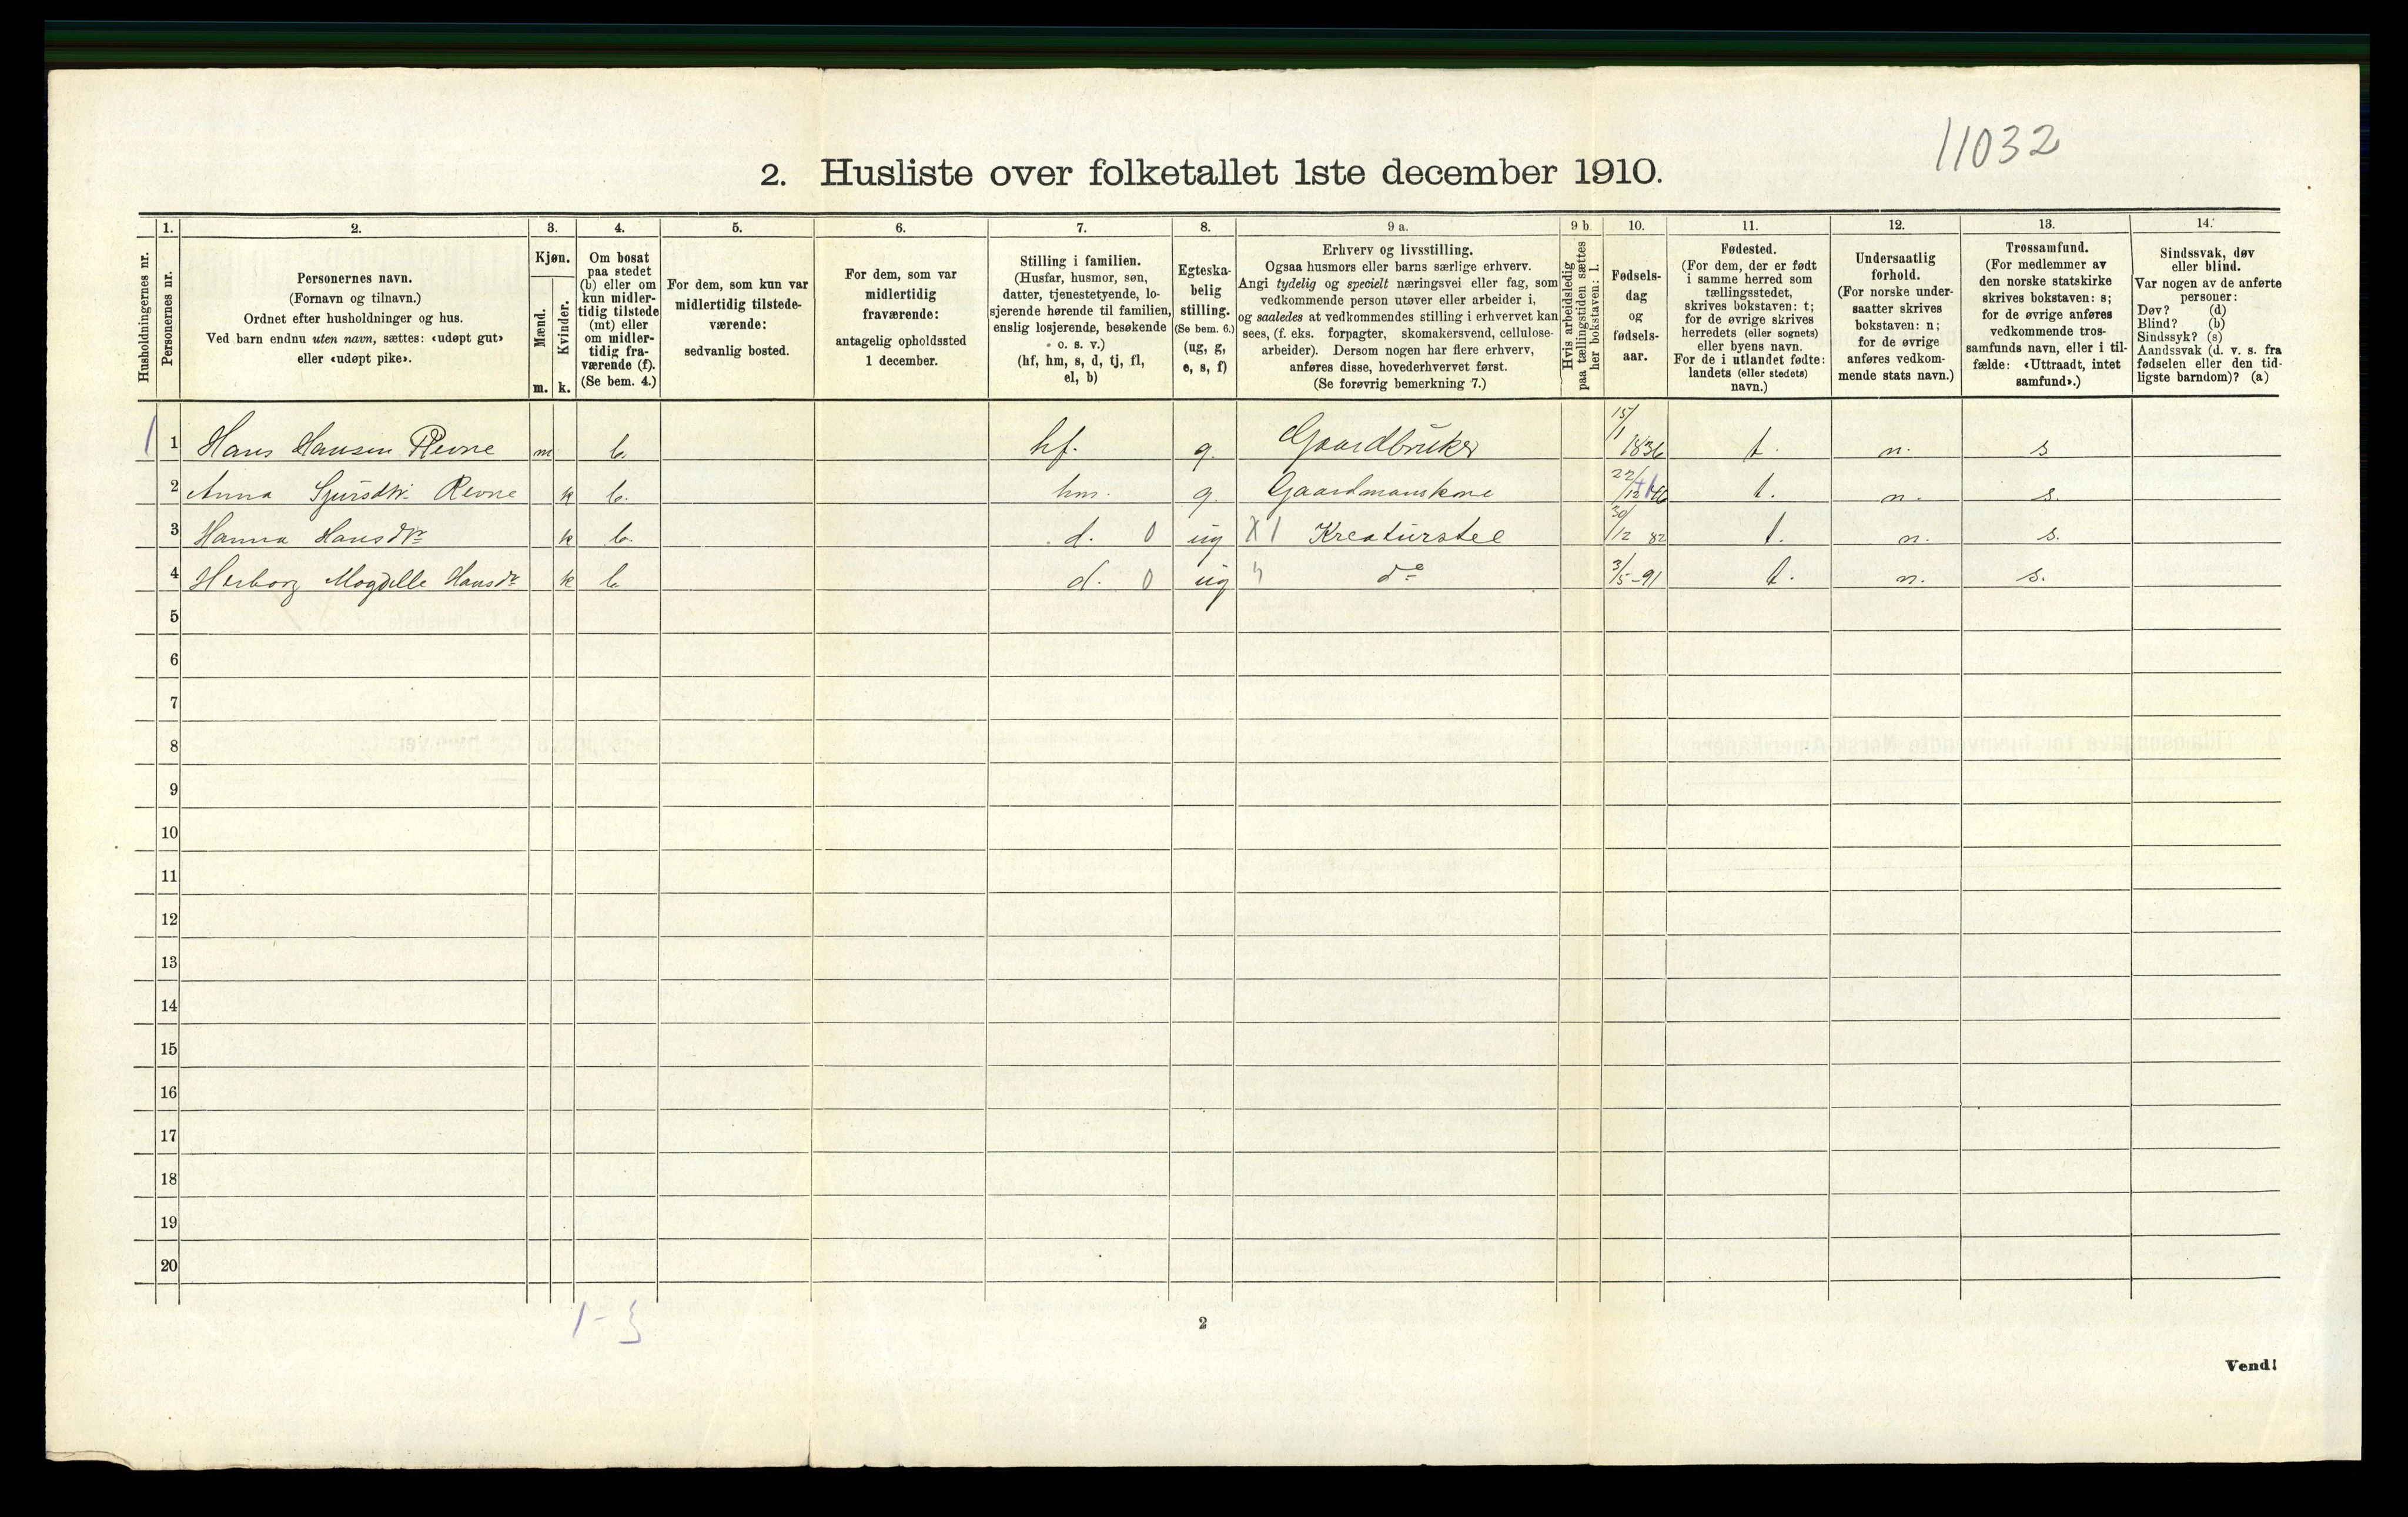 11032
2. Husliste over folketallet 1ste december 1910.
1. 2. 3. 4. 5. 6. 7. 8. 9 a. 9 b. 10. 11. 12. 13. 14.
Husholdningernes nr.
Personernes nr.
Personernes navn.
(Fornavn og tilnavn.)
Ordnet efter husholdninger og hus.
Ved barn endnu uten navn, sættes: «udøpt gut»
eller «udøpt pike».
Kjøn.
Mænd.
Kvinder.
m. k.
Om bosat
paa stedet
(b) eller om
kun midler-
tidig tilstede
(mt) eller
om midler-
tidig fra-
værende (f).
(Se bem. 4.)
For dem, som kun var
midlertidig tilstede-
værende:
sedvanlig bosted.
For dem, som var
midlertidig
fraværende:
antagelig opholdssted
1 december.
Stilling i familien.
(Husfar, husmor, søn,
datter, tjenestetyende, lo-
sjerende hørende til familien,
enslig losjerende, besøkende
o. s. v.)
(hf, hm, s, d, tj, fl,
el, b)
Egteska-
belig
stilling.
(Se bem. 6.)
(ug, g,
e, s, f)
Erhverv og livsstilling.
Ogsaa husmors eller barns særlige erhverv.
Angi tydelig og specielt næringsvei eller fag, som
vedkommende person utøver eller arbeider i,
og saaledes at vedkommendes stilling i erhvervet kan
sees, (f. eks. forpagter, skomakersvend, cellulose-
arbeider). Dersom nogen har flere erhverv,
anføres disse, hovederhvervet først.
(Se forøvrig bemerkning 7.)
Hvis arbeidsledig
paa tællingstiden sættes
her bokstaven: l.
Fødsels-
dag
og
fødsels-
aar.
Fødested.
(For dem, der er født
i samme herred som
tællingsstedet,
skrives bokstaven: t;
for de øvrige skrives
herredets (eller sognets)
eller byens navn.
For de i utlandet fødte:
landets (eller stedets)
navn.)
Undersaatlig
forhold.
(For norske under-
saatter skrives
bokstaven: n;
for de øvrige
anføres vedkom-
mende stats navn.)
Trossamfund.
(For medlemmer av
den norske statskirke
skrives bokstaven: s;
for de øvrige anføres
vedkommende tros-
samfunds navn, eller i til-
fælde: «Uttraadt, intet
samfund».)
Sindssvak, døv
eller blind.
Var nogen av de anførte
personer:
Døv? (d)
Blind? (b)
Sindssyk? (s)
Aandssvak (d. v. s. fra
fødselen eller den tid-
ligste barndom)? (a)
1 1 Hans Hansen Revne m b. hf. g. Gaardbruker 15/1 1836 t. n. s
2 Anna Sjursdtr. Revne k b. hm. g. Gaardmanskone 22/12 46 t. n. s.
3 Hanna Hansdtr k b. d. 0 ug X 1 Kreaturstel 30/12 82 t. n. s.
4 Herborg Hansdr k b d. 0 ug do 3/5-91 t. n. s.
5
6
7
8
9
10
11
12
13
14
15
16
17
18
19
20
1-3
2
Vend!